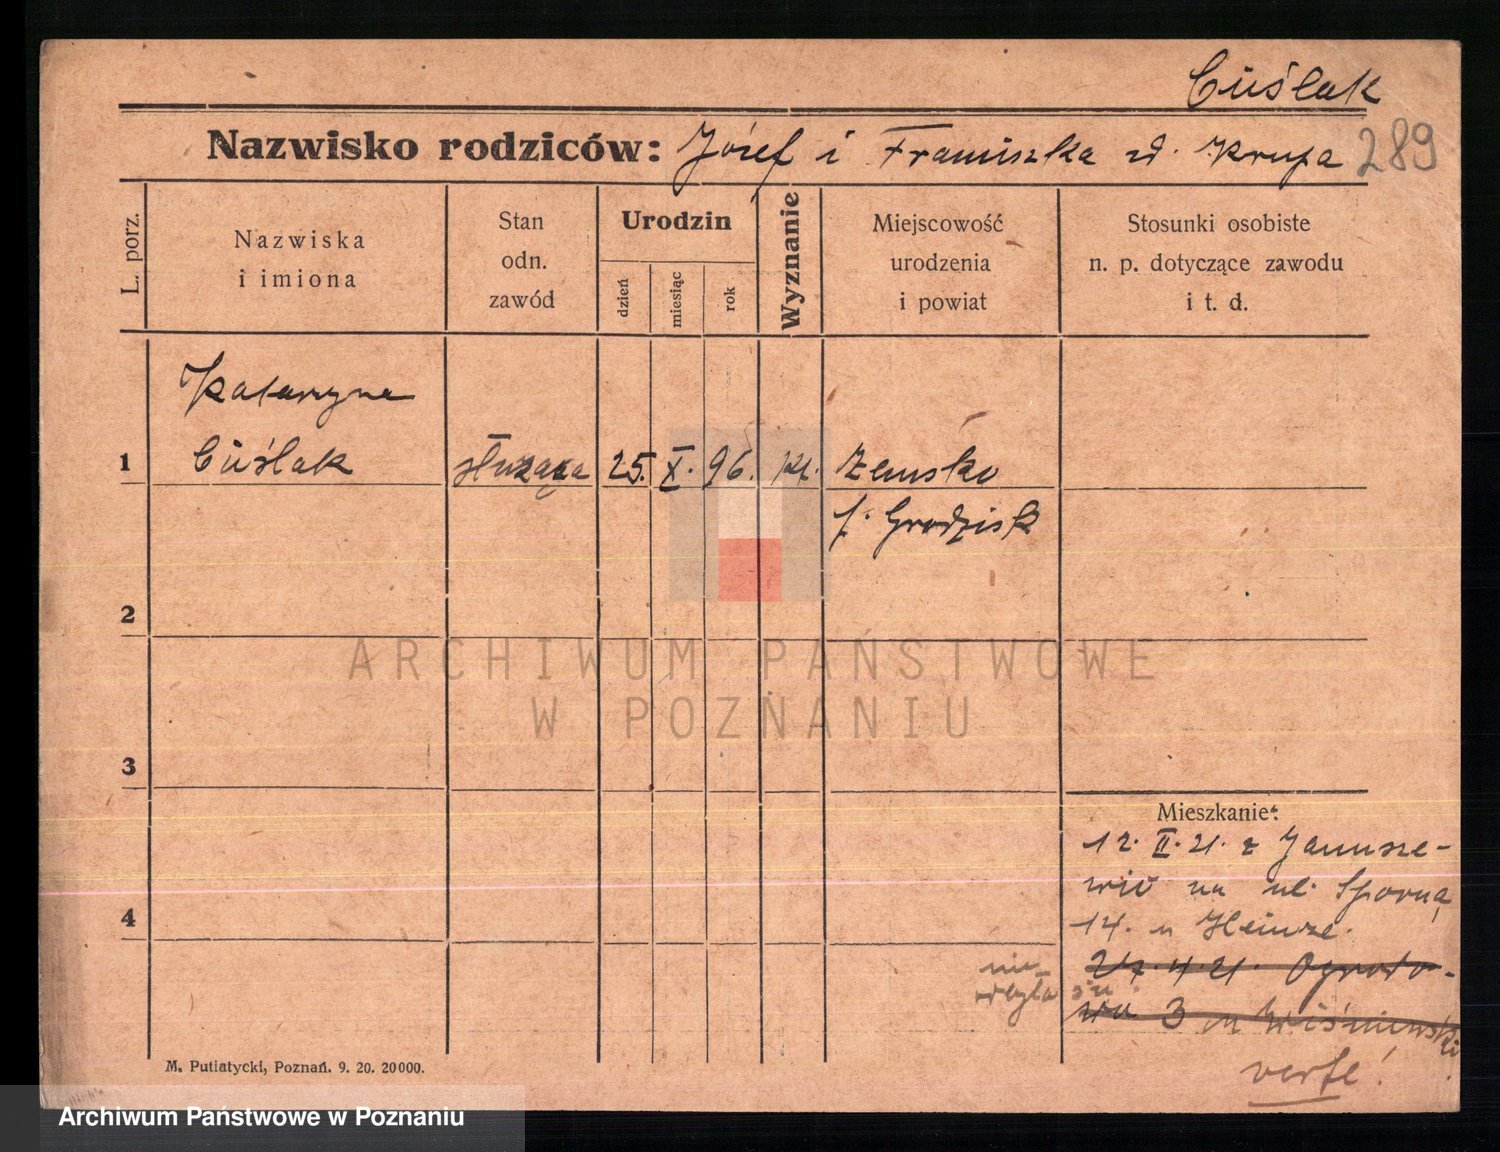 Cuślak
Nazwisko rodziców: Józef i Franciszka zd. Krupa 289
L. porz.
Nazwiska
i imiona
Stan
odn.
zawód
Urodzin
dzień
miesiąc
rok
Wyznanie
Miejscowość
urodzenia
i powiat
Stosunki osobiste
n. p. dotyczące zawodu
i t. d.
Katarzyna
1 Cuślak służąca 25. X. 96. kt. Zemsko
p. Grodzisk
2
3
4
Mieszkanie:
12. II. 21. z Janusze-
wic na ul. Sporną
14. u Heinze.
27.4.21. Ogrodo-
wa 3 u Wiśniewski
nie
odbyła się
verte!
M. Putiatycki, Poznań. 9. 20. 20000.
ARCHIWUM PAŃSTWOWE
W POZNANIU
Archiwum Państwowe w Poznaniu